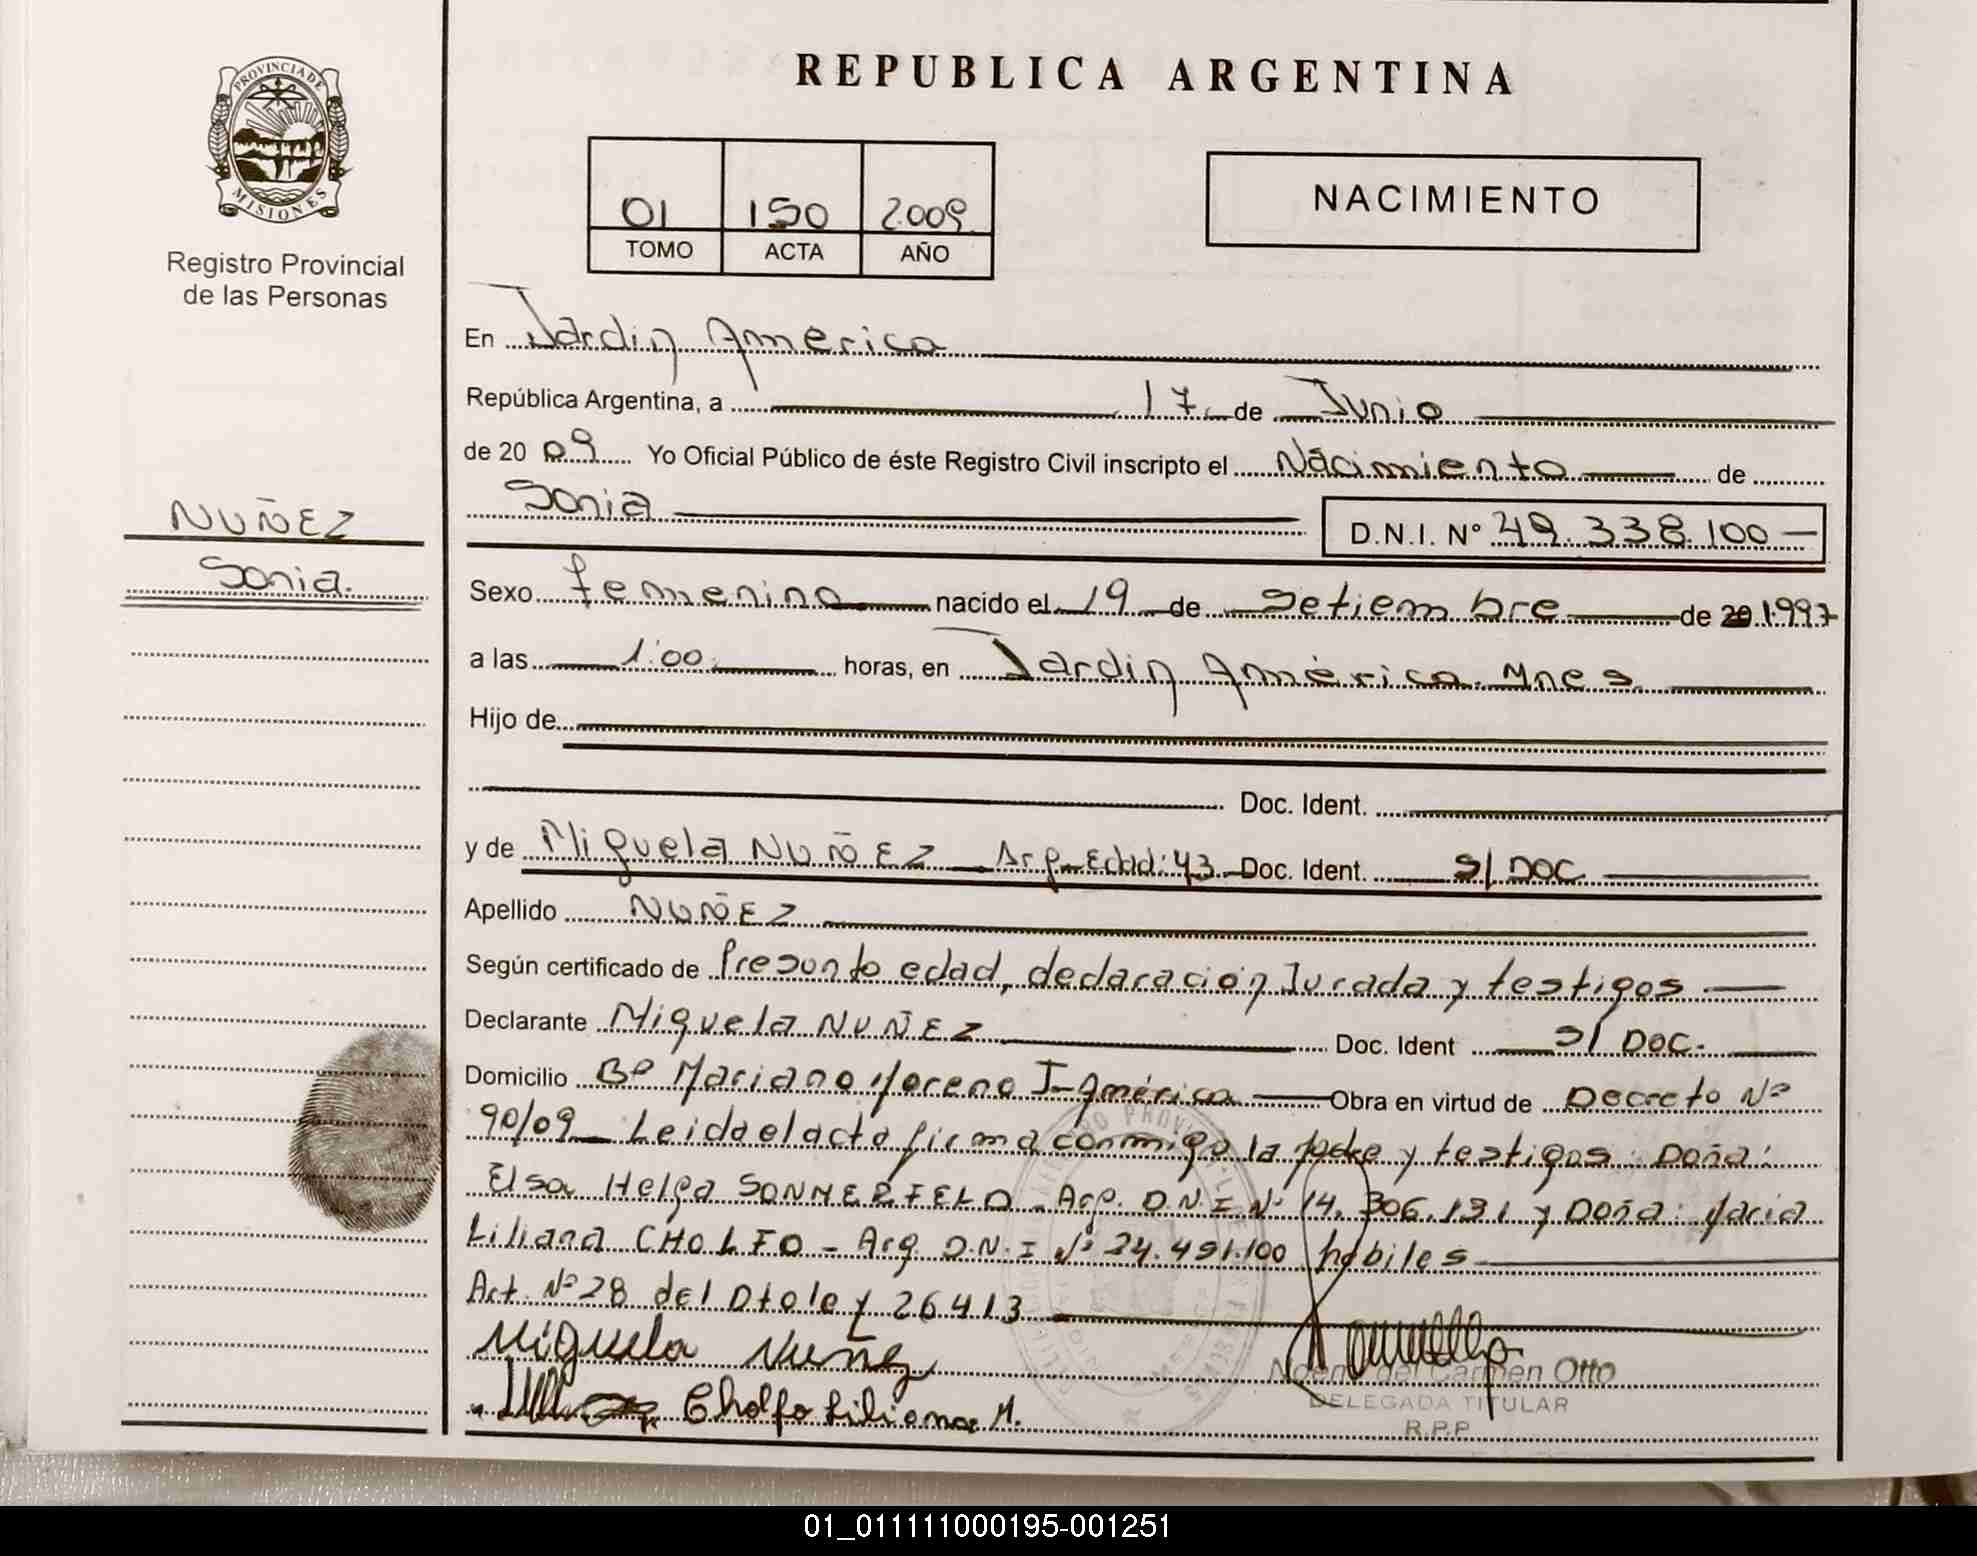 PROVINCIA DE
MISIONES
Registro Provincial
de las Personas
NUÑEZ
Sonia.
REPUBLICA ARGENTINA
01 150 2009
TOMO ACTA AÑO
NACIMIENTO
En Jardin América
República Argentina, a 17 de Junio
de 20 09 Yo Oficial Público de éste Registro Civil inscripto el Nacimiento de
Sonia D.N.I. Nº 49.338.100
Sexo femenino nacido el 19 de Setiembre de 20 1997
a las 1:00 horas, en Jardin América. Mnes
Hijo de
Doc. Ident.
y de Miguela NUÑEZ Arg. Edad: 43 Doc. Ident. S/ DOC
Apellido NUÑEZ
Según certificado de Presunto edad, declaración Jurada y testigos
Declarante Miguela NUÑEZ Doc. Ident S/ DOC.
Domicilio Bº Mariano Moreno J-América Obra en virtud de Decreto Nº
90/09 Leida el acta firma conmigo la madre y testigos: Doña:
Elsa Helga SONMERFELD - Arg. D.N.I Nº 14.306.131 y Doña: Maria
Liliana CHOLFO - Arg. D.N.I Nº 24.491.100 habiles
Art. Nº 28 del Dto ley 26413
Miguela Nuñez
Cholfo Liliana M.
Noemi del Carmen Otto
DELEGADA TITULAR
R.P.P
01_011111000195-001251